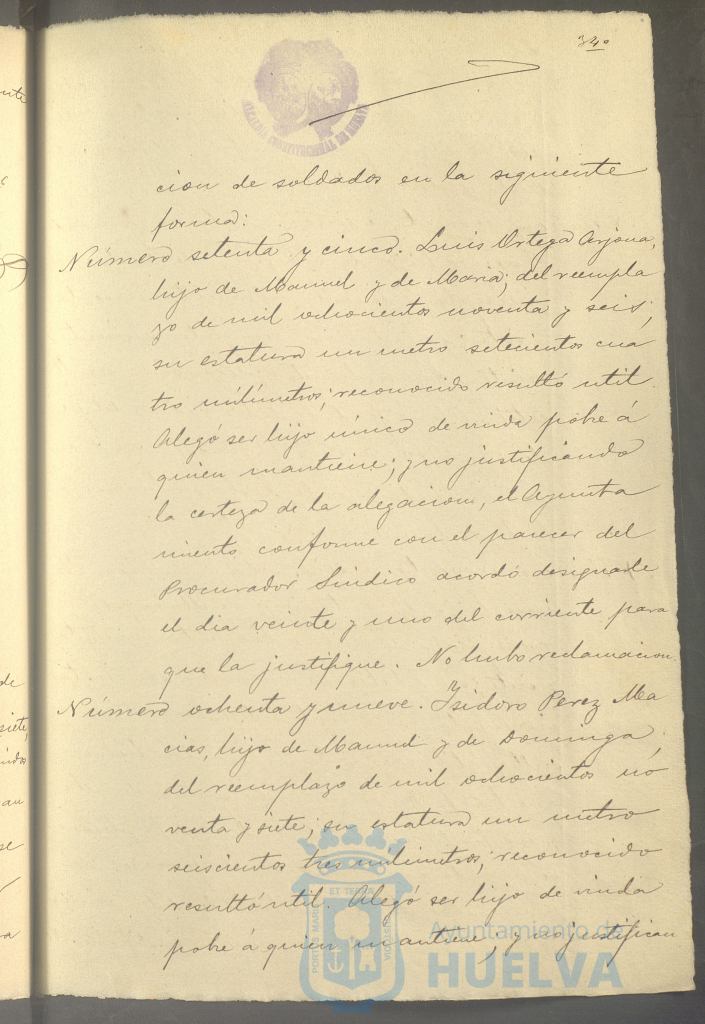 34º
ALCALDIA CONSTITUCIONAL DE HUELVA
cion de soldados en la siguiente
forma:
Número setenta y cinco. Luis Ortega Arjona,
hijo de Manuel y de Maria; del reempla
zo de mil ochocientos noventa y seis;
su estatura un metro setecientos cua
tro milímetros; reconocido resultó util.
Alegó ser hijo único de viuda pobre á
quien mantiene; y no justificando
la certeza de la alegacion, el Ayunta
miento conforme con el parecer del
Procurador Síndico acordó designarle
el dia veinte y uno del corriente para
que la justifique. No hubo reclamacion.
Número ochenta y nueve. Isidoro Perez Ma
cias, hijo de Manuel y de Dominga,
del reemplazo de mil ochocientos no
venta y siete; su estatura un metro
seiscientos tres milímetros; reconocido
resultó util. Alegó ser hijo de viuda
pobre á quien mantiene; y no justifican
PORTUS MARIS ET TERRAE CUSTODIA
Ayuntamiento de
HUELVA